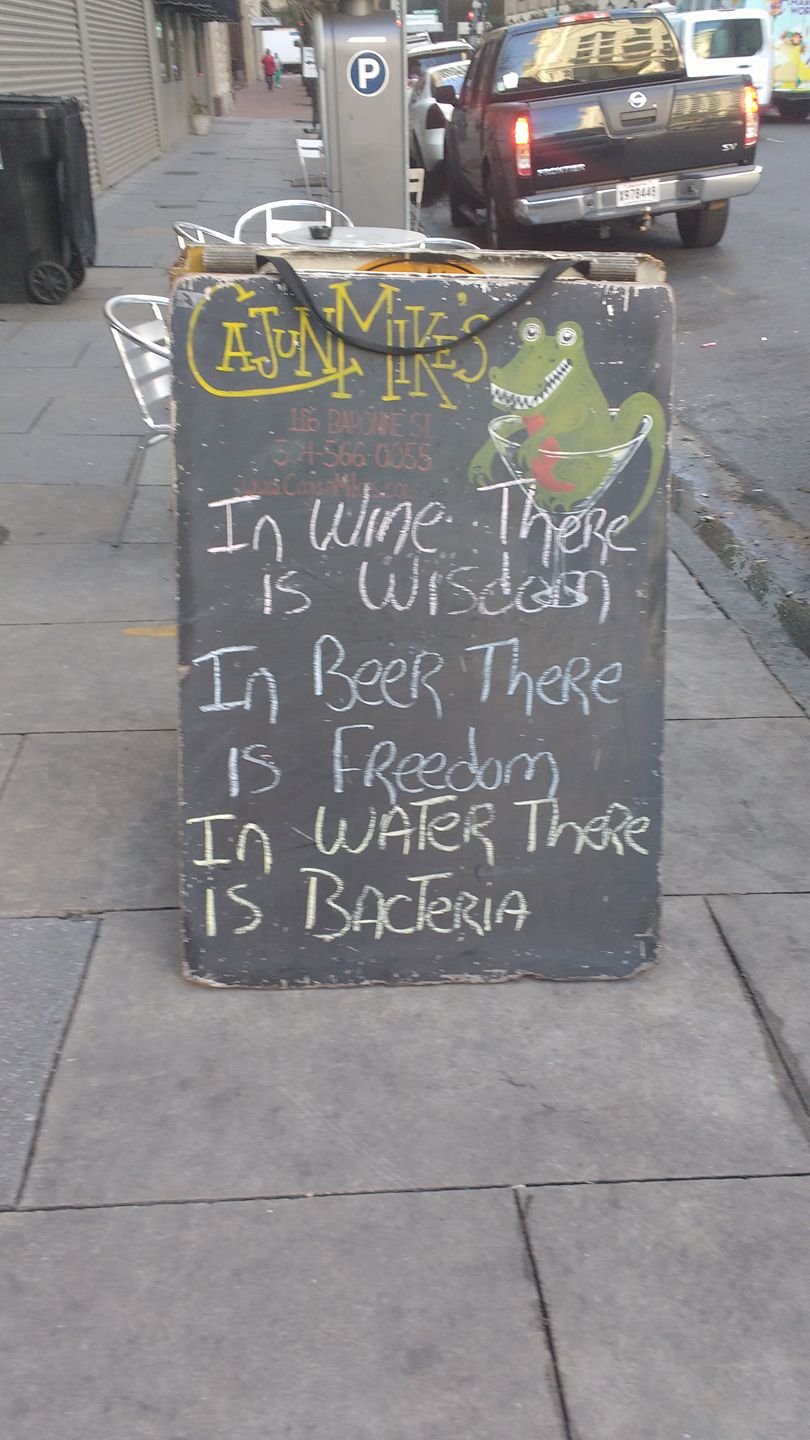 P
FRONTIER
SV
CAJUN MIKE'S
116 BARONNE ST
504-566-0055
In Wine There
is Wisdom
In Beer There
is Freedom
In Water There
is Bacteria